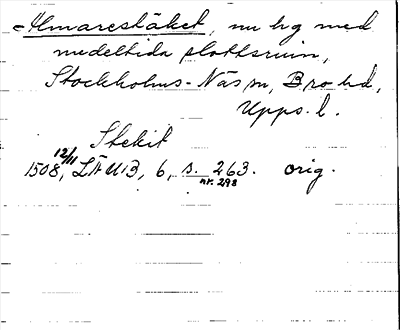 -Almarestäket, nu hg med
medeltida slottsruin,
Stockholms-Näs sn, Bro hd,
Upps. l.
Stekit
1508 12/11, LÄUB, 6, s. 263. orig.
nr. 298